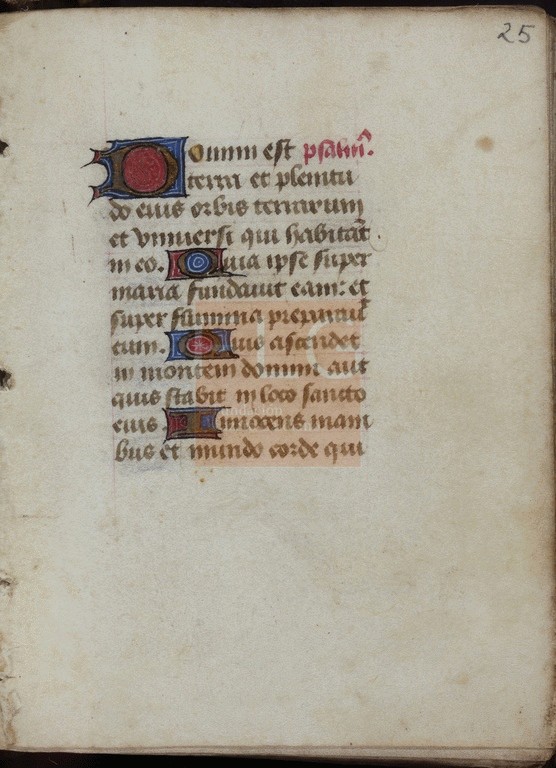 25
Domini est psalm̄.
terra et plenitu
do eius orbis terrarum
et vniuersi qui habitāt
in eo. Quia ipse super
maria fundauit eam: et
super flumina preparauit
eum. Quis ascendet
in montem domini aut
quis stabit in loco sancto
eius. Innocens mani
bus et mundo corde qui